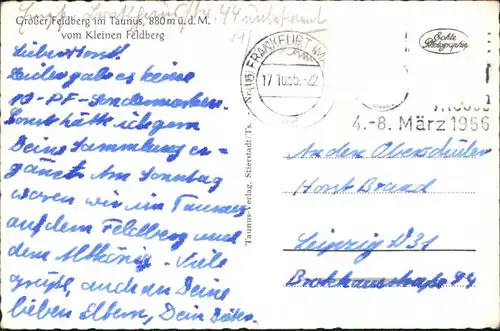 Großer Feldberg im Taunus, 880 m ü. d. M.
vom Kleinen Feldberg
Lieber Horst!
Leider gab es keine
10-PF-Sondermarken.
Sonst hätt ich gern
Deine Sammlung er-
gänzt. Am Sonntag
waren wir im Taunus
auf dem Feldberg und
dem Altkönig. Viele
Grüße, auch an Deine
lieben Eltern, Dein
Taunus-Verlag, Stierstadt/Ts.
FRANKFURT (MAIN)
17.10.55.-22
4.-8. März 1956
Echte
Photographie
An den Oberschüler
Horst Brand
Leipzig O 31
Brockhausstraße 94